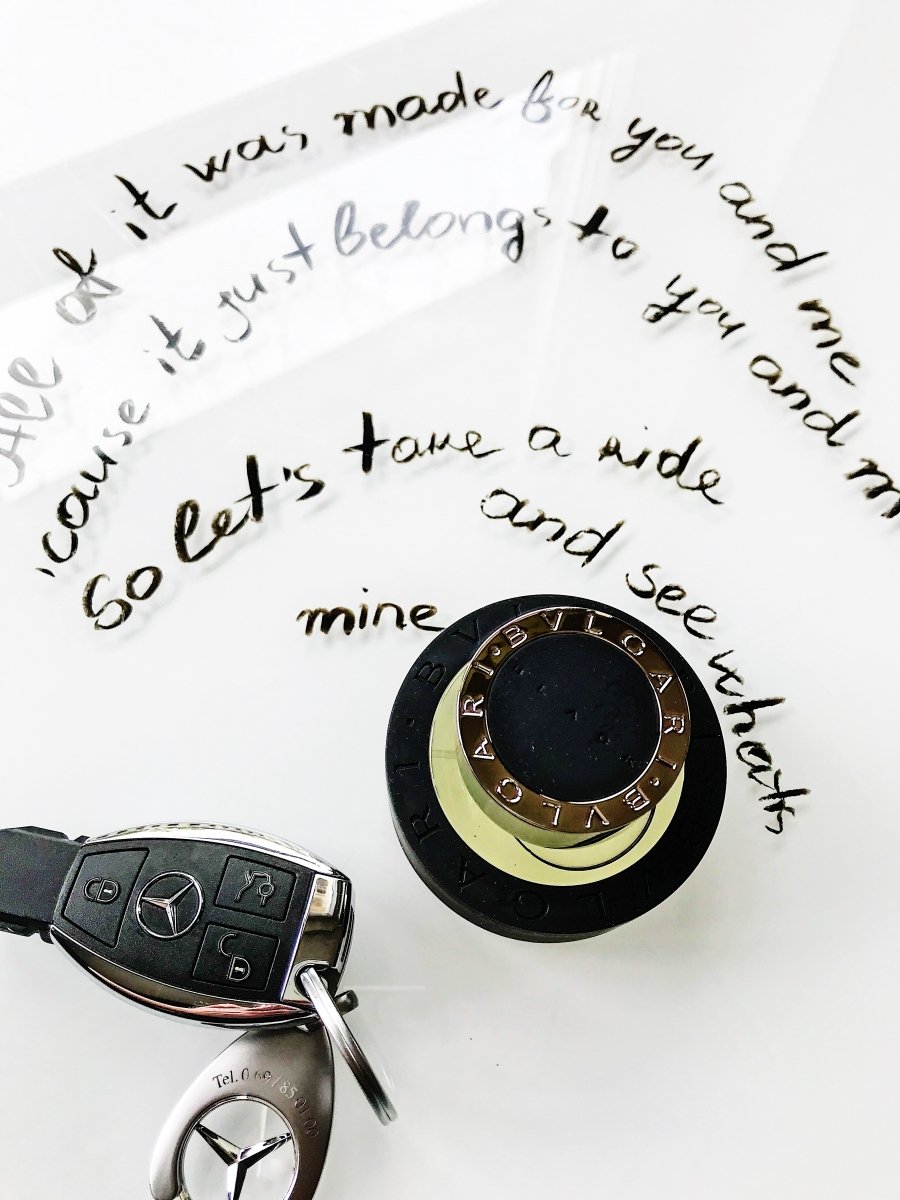 All of it was made for you and me
'cause it just belongs to you and m
So let's take a ride
and see whats
mine
BVLGARI · BVLGARI ·
BVLGARI · BVLGARI ·
Tel. 0 69 / 85 01 00